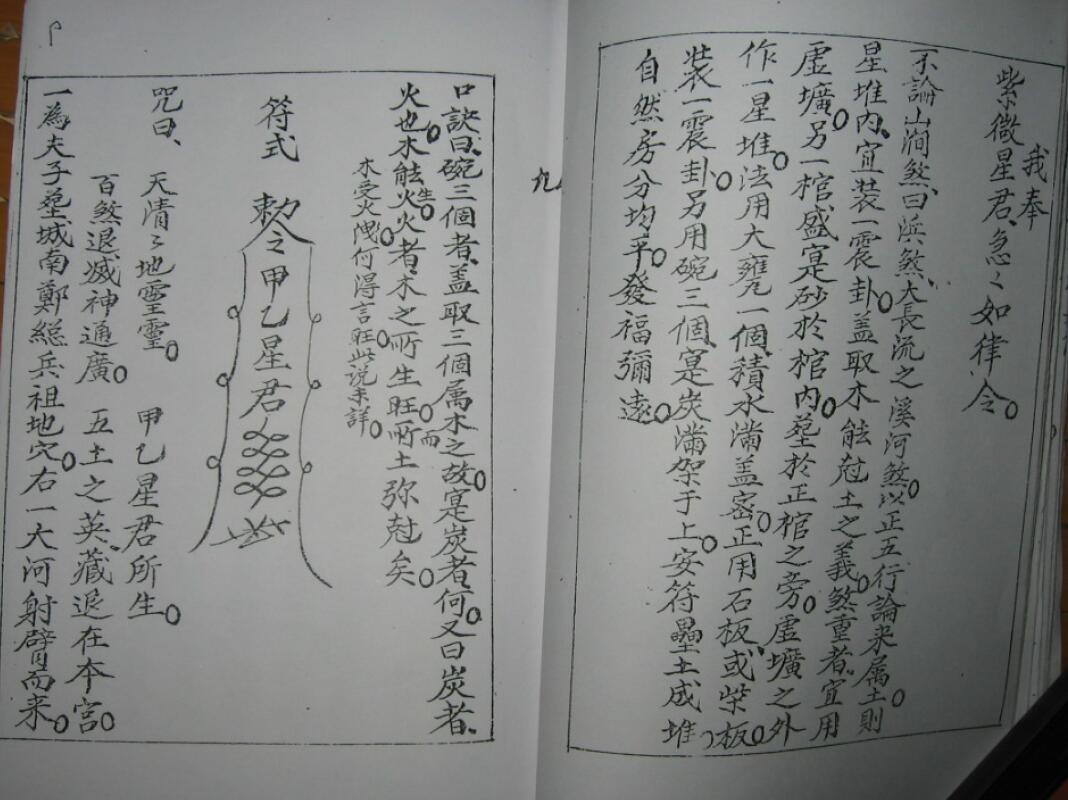 我奉
紫微星君、急々如律令。
一不論山澗煞、曰浜煞、大長流之溪河煞。以正五行論来属土。則
星堆內、宜装一震卦。盖取木能尅土之義。煞重者、宜用
虛壙。另一棺盛寔砂於棺內。塟於正棺之旁。虛壙之外
作一星堆。法用大甕一個、積水滿盖密。正用石板、或柴板。
裝一震卦。另用碗三個、寔炭滿架于上。安符壘土成堆
自然房分均平。發福彌遠。
九
口訣曰、碗三個者、盖取三個属木之故。寔炭者何。又曰炭者、
火也。木能生火。火者木之所生。旺所而土弥尅矣。
木受火洩。何得言旺。此説未詳。
符式
敕令甲乙星君
咒曰、 天清々地靈靈。 甲乙星君所生。
百煞退滅神通廣。 五土之英、藏退在本宮。
一為夫子塟城南鄭総兵祖地穴。右一大河射臂而来。